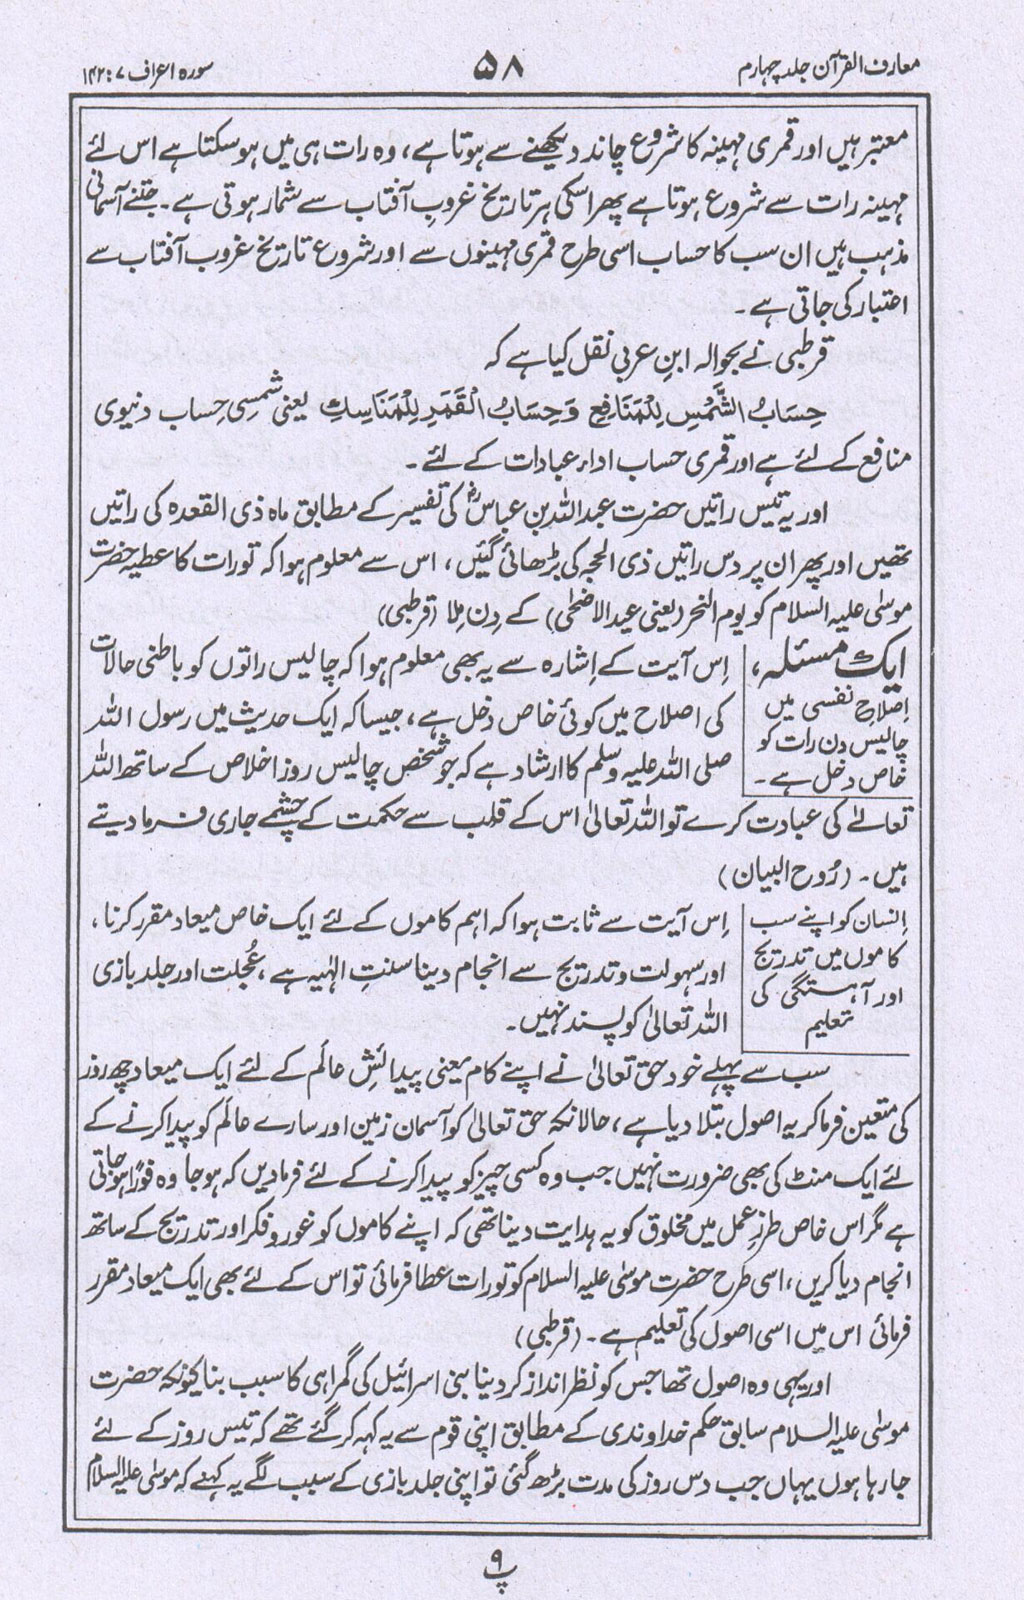 معارف القرآن جلد چہارم
۵۸
سورہ اعراف ۷ : ۱۴۲
معتبر ہیں اور قمری مہینہ کا شروع چاند دیکھنے سے ہوتا ہے، وہ رات ہی میں ہوسکتا ہے اس لئے
مہینہ رات سے شروع ہوتا ہے پھر اسکی ہر تاریخ غروبِ آفتاب سے شمار ہوتی ہے۔ جتنے آسمانی
مذہب ہیں ان سب کا حساب اسی طرح قمری مہینوں سے اور شروع تاریخ غروب آفتاب سے
اعتبار کی جاتی ہے۔
قرطبی نے بحوالہ ابنِ عربی نقل کیا ہے کہ
حِسَابُ الشَّمْسِ لِلْمَنَافِعِ وَحِسَابُ الْقَمَرِ لِلْمَنَاسِكِ یعنی شمسِی حِساب دنیوی
منافع کے لئے ہے اور قمری حساب اداء عبادات کے لئے۔
اور یہ تیس راتیں حضرت عبداللہ بن عباسؓ کی تفسیر کے مطابق ماہ ذی القعدہ کی راتیں
تھیں اور پھر ان پر دس راتیں ذی الحجہ کی بڑھائی گئیں، اس سے معلوم ہوا کہ تورات کا عطیہ حضرت
موسٰی علیہ السلام کو یوم النحر (یعنی عید الاضحٰی) کے دِن مِلا (قرطبی)
ایک مسئلہ،
اِصلاحِ نفسی میں
چالیس دن رات کو
خاص دخل ہے۔
اِس آیت کے اِشارہ سے یہ بھی معلوم ہوا کہ چالیس راتوں کو باطنی حالات
کی اصلاح میں کوئی خاص دخل ہے، جیسا کہ ایک حدیث میں رسول اللہ
صلی اللہ علیہ وسلم کا ارشاد ہے کہ جو شخص چالیس روز اخلاص کے ساتھ اللہ
تعالےٰ کی عبادت کرے تو اللہ تعالیٰ اس کے قلب سے حکمت کے چشمے جاری فرما دیتے
ہیں۔ (رُوح البیان)
اِنسان کو اپنے سب
کاموں میں تدریج
اور آہستگی کی
تعلیم
اِس آیت سے ثابت ہوا کہ اہم کاموں کے لئے ایک خاص میعاد مقرر کرنا،
اور سہولت و تدریج سے انجام دینا سنتِ الٰہیہ ہے، عُجلت اور جلد بازی
اللہ تعالیٰ کو پسند نہیں۔
سب سے پہلے خود حق تعالیٰ نے اپنے کام یعنی پیدائشِ عالَم کے لئے ایک میعاد چھ روز
کی متعین فرما کر یہ اصول بتلا دیا ہے، حالانکہ حق تعالیٰ کو آسمان زمین اور سارے عالَم کو پیدا کرنے کے
لئے ایک منٹ کی بھی ضرورت نہیں جب وہ کسی چیز کو پیدا کرنے کے لئے فرما دیں کہ ہو جا وہ فورًا ہو جاتی
ہے مگر اس خاص طرزِ عمل میں مخلوق کو یہ ہدایت دینا تھی کہ اپنے کاموں کو غور و فکر اور تدریج کے ساتھ
انجام دیا کریں، اسی طرح حضرت موسٰی علیہ السلام کو تورات عطا فرمائی تو اس کے لئے بھی ایک میعاد مقرر
فرمائی اس میں اسی اصول کی تعلیم ہے۔ (قرطبی)
اور یہی وہ اصول تھا جس کو نظر انداز کر دینا بنی اسرائیل کی گمراہی کا سبب بنا کیونکہ حضرت
موسٰی علیہ السلام سابق حکمِ خداوندی کے مطابق اپنی قوم سے یہ کہہ کر گئے تھے کہ تیس روز کے لئے
جا رہا ہوں یہاں جب دس روز کی مدت بڑھ گئی تو اپنی جلد بازی کے سبب لگے یہ کہنے کہ موسٰی علیہ السلام
پ ۹